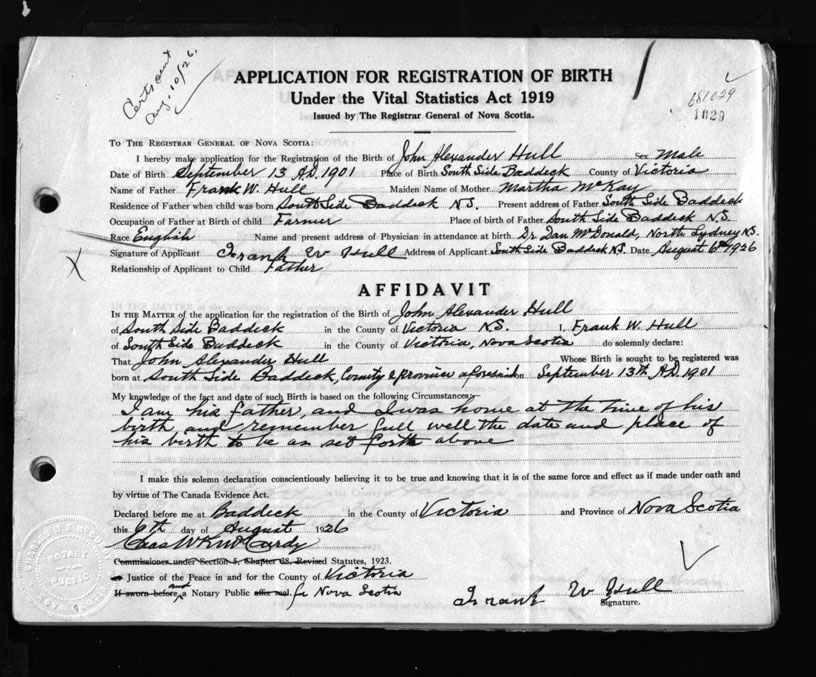 Cert sent
Aug. 10/26.
APPLICATION FOR REGISTRATION OF BIRTH
Under the Vital Statistics Act 1919
Issued by The Registrar General of Nova Scotia.
681029
1029
TO THE REGISTRAR GENERAL OF NOVA SCOTIA:
I hereby make application for the Registration of the Birth of John Alexander Hull Sex Male
Date of Birth September 13 A.D. 1901 Place of Birth South Side Baddeck County of Victoria
Name of Father Frank W. Hull Maiden Name of Mother Martha McKay
Residence of Father when child was born South Side Baddeck N.S. Present address of Father South Side Baddeck
Occupation of Father at Birth of child Farmer Place of birth of Father South Side Baddeck N.S.
Race English Name and present address of Physician in attendance at birth Dr Dan McDonald, North Sydney N.S.
Signature of Applicant Frank W Hull Address of Applicant South Side Baddeck N.S. Date August 6th 1926
Relationship of Applicant to Child Father
AFFIDAVIT
IN THE MATTER of the application for the registration of the Birth of John Alexander Hull
of South Side Baddeck in the County of Victoria N.S. I, Frank W. Hull
of South Side Baddeck in the County of Victoria, Nova Scotia do solemnly declare:
That John Alexander Hull Whose Birth is sought to be registered was
born at South Side Baddeck, County & province aforesaid on September 13th A.D. 1901
My knowledge of the fact and date of such Birth is based on the following Circumstances:
I am his father, and I was home at the time of his
birth and remember full well the date and place of
his birth to be as set forth above
I make this solemn declaration conscientiously believing it to be true and knowing that it is of the same force and effect as if made under oath and
by virtue of The Canada Evidence Act.
Declared before me at Baddeck in the County of Victoria and Province of Nova Scotia
this 6th day of August 1926
Chas W K McCurdy
Commissioner under Section 5, Chapter 38, Revised Statutes, 1923.
Justice of the Peace in and for the County of Victoria
If sworn before and a Notary Public affix seal. for Nova Scotia
Frank W Hull
Signature.
NOTARY
PUBLIC